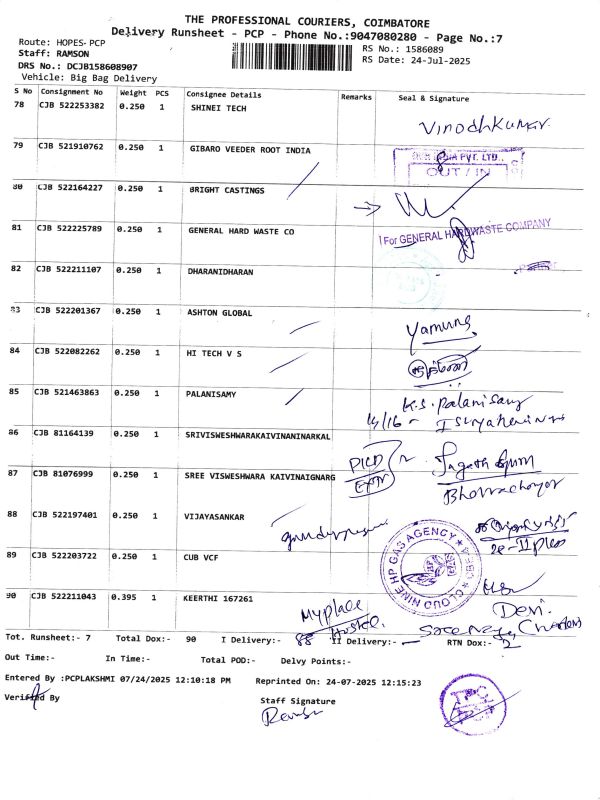 THE PROFESSIONAL COURIERS, COIMBATORE
Delivery Runsheet - PCP - Phone No.:9047080280 - Page No.:7
Route: HOPES-PCP
RS No.: 1586089
Staff: RAMSON
RS Date: 24-Jul-2025
DRS No.: DCJB158608907
Vehicle: Big Bag Delivery
S No Consignment No Weight PCS Consignee Details Remarks Seal & Signature
78 CJB 522253382 0.250 1 SHINEI TECH
Vinodhkumar.
79 CJB 521910762 0.250 1 GIBARO VEEDER ROOT INDIA
PVT. LTD.,
OUT / IN
80 CJB 522164227 0.250 1 BRIGHT CASTINGS
81 CJB 522225789 0.250 1 GENERAL HARD WASTE CO
For GENERAL HARDWASTE COMPANY
82 CJB 522211107 0.250 1 DHARANIDHARAN
Partner
83 CJB 522201367 0.250 1 ASHTON GLOBAL
Yamuna
84 CJB 522082262 0.250 1 HI TECH V S
85 CJB 521463863 0.250 1 PALANISAMY
K.S. Palanisamy
86 CJB 81164139 0.250 1 SRIVISWESHWARAKAIVINANINARKAL
87 CJB 81076999 0.250 1 SREE VISWESHWARA KAIVINAIGNARG
88 CJB 522197401 0.250 1 VIJAYASANKAR
89 CJB 522203722 0.250 1 CUB VCF
CLOUD NINE HP GAS AGENCY
90 CJB 522211043 0.395 1 KEERTHI 167261
Myplace
Hostel
Devi
Tot. Runsheet:- 7 Total Dox:- 90 I Delivery:- 88 II Delivery:- RTN Dox:- 2
Out Time:- In Time:- Total POD:- Delvy Points:-
Entered By :PCPLAKSHMI 07/24/2025 12:10:18 PM Reprinted On: 24-07-2025 12:15:23
Verified By Staff Signature